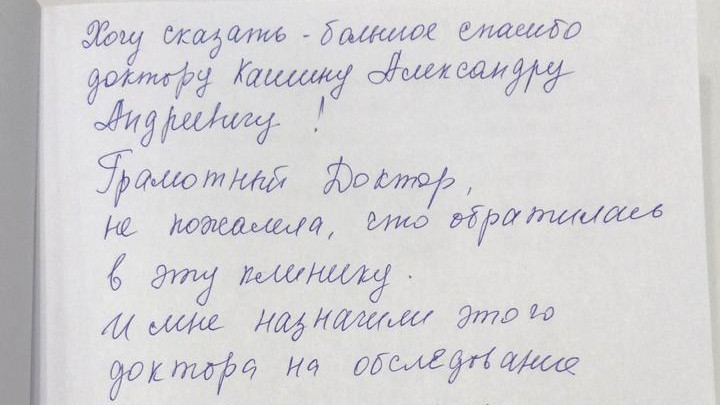 Хочу сказать - большое спасибо
доктору Кашину Александру
Андреевичу !
Грамотный Доктор,
не пожалела, что обратилась
в эту клинику.
И мне назначили этого
доктора на обследование